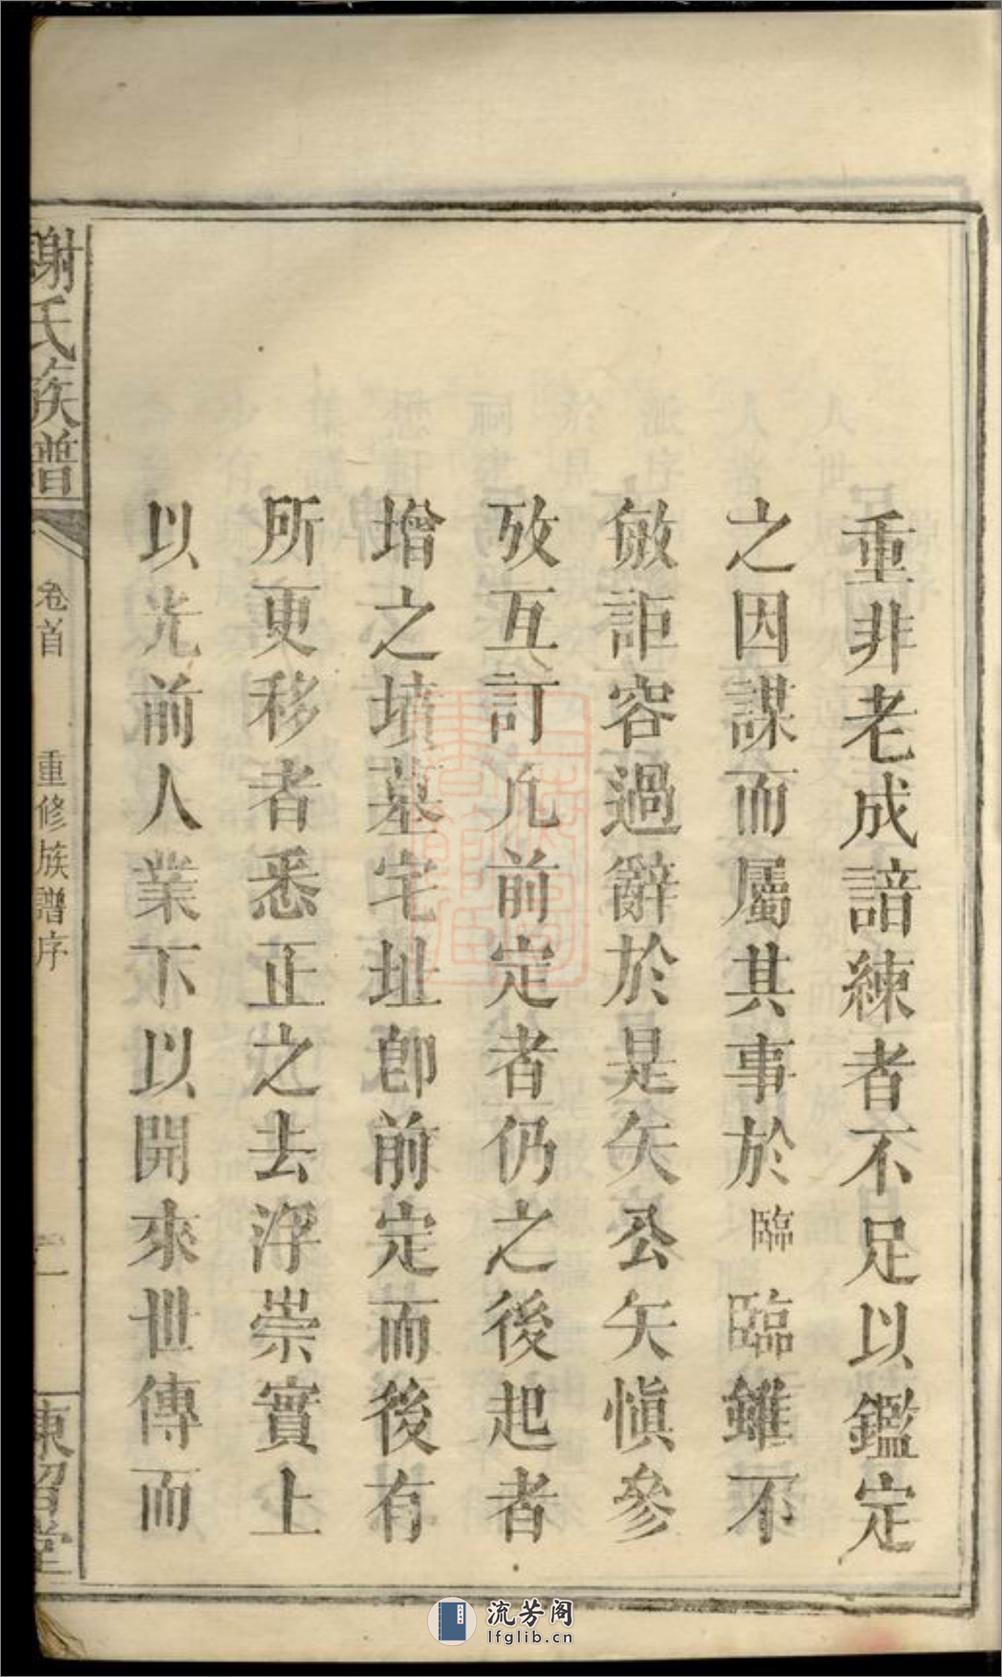 重非老成諳練者不足以鑑定
之因謀而屬其事於臨臨雖不
敏詎容過辭於是矢公矢慎參
攷互訂凡前定者仍之後起者
增之墳墓宅址卽前定而後有
所更移者悉正之去浮崇實上
以光前人業下以開來世傳而
謝氏族譜
卷首
重修族譜序
二
東智堂
流芳阁
lfglib.cn